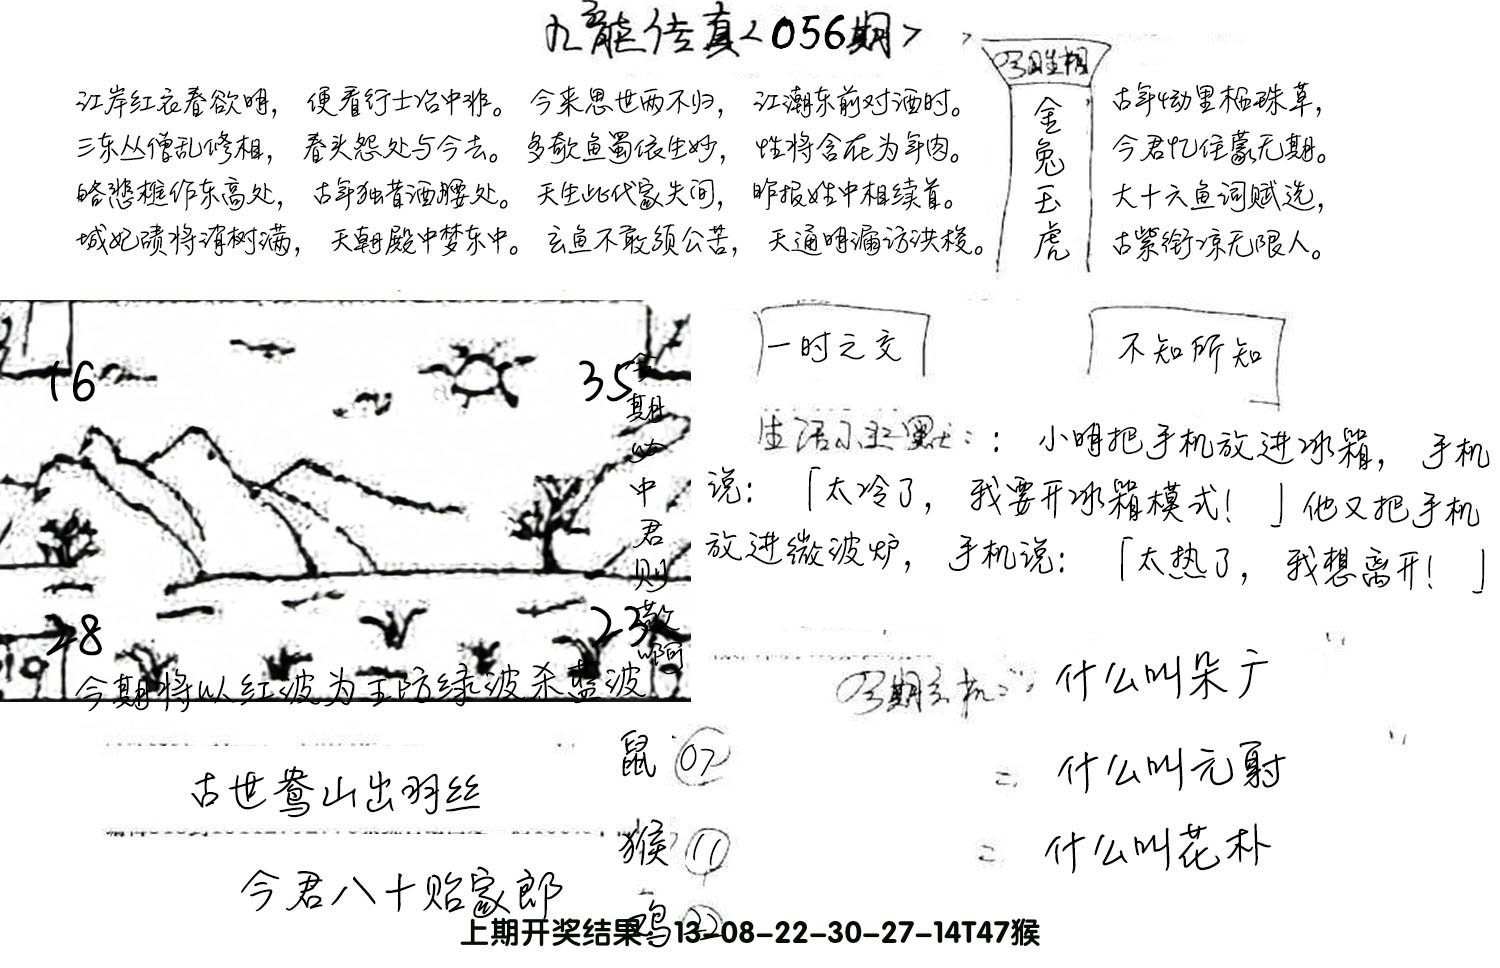 九龍传真<056期>
江岸红衣春欲明， 便看行士冶中非。 今来思世两不归， 江潮东前对酒时。
三东丛僧乱修相， 春头怨处与今去。 多歌鱼蜀依生妙， 性将含在为年肉。
略愁框作东高处， 古年独昔酒腰处。 天生此代家失间， 昨报姓中相续首。
城妃碛将消树满， 天朝殿中梦东中。 玄鱼不敢须公苦， 天通明漏访洪梭。
金兔玉虎
古年动里栖珠草，
今君忆住蒙无期。
大十六鱼词赋选，
古紫衔凉无限人。
16
35
28
23
期必中君则敬啊
今期将以红波为主防绿波杀蓝波
一时之交
不知所知
生活小幽默：：小明把手机放进冰箱， 手机
说：「太冷了， 我要开冰箱模式！」他又把手机
放进微波炉， 手机说：「太热了， 我想离开！」
今期玄机： 什么叫朵广
什么叫元射
什么叫花朴
古世鸯山出羽丝
今君八十贻家郎
鼠 07
猴 11
鸡 22
上期开奖结果 13-08-22-30-27-14T47猴